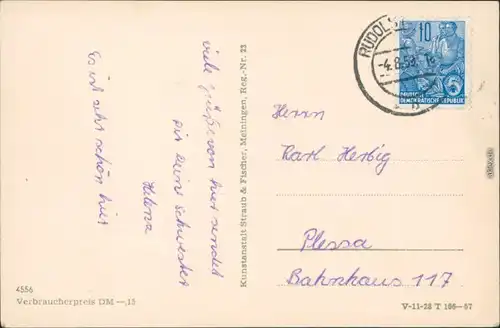 viele Grüße von hier sendet
dir deine Schwester
Helena
Es ist sehr schön hier
Kunstanstalt Straub & Fischer, Meiningen, Reg.-Nr. 23
RUDOLST
-4.8.59.-18
10
DEUTSCHE
DEMOKRATISCHE REPUBLIK
Herrn
Karl Herbig
Plessa
Bahnhaus 117
4556
Verbraucherpreis DM —,15
V-11-28 T 166-57